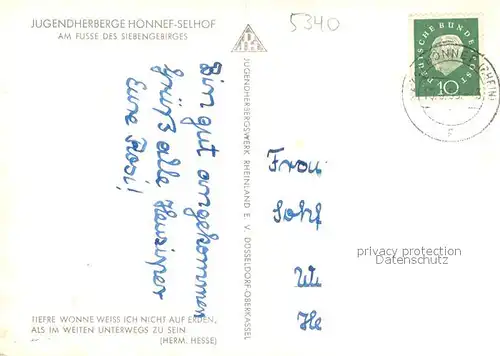 JUGENDHERBERGE HONNEF-SELHOF
AM FUSSE DES SIEBENGEBIRGES
5340
DEUTSCHE BUNDESPOST
10
Bin gut angekommen
Grüß alle
Eure Rosi!
JUGENDHERBERGSWERK RHEINLAND E. V. DÜSSELDORF-OBERKASSEL
Frau
privacy protection
Datenschutz
TIEFRE WONNE WEISS ICH NICHT AUF ERDEN,
ALS IM WEITEN UNTERWEGS ZU SEIN
(HERM. HESSE)